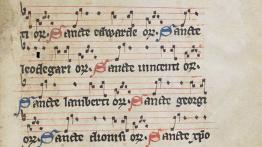 ti or̃. Sancte edwarde or̃. Sancte
leodegari or̃. Sancte vincenti or̃.
Sancte lamberti or̃. Sancte georgi
or̃. Sancte dionisi or̃. Sancte xp̃o